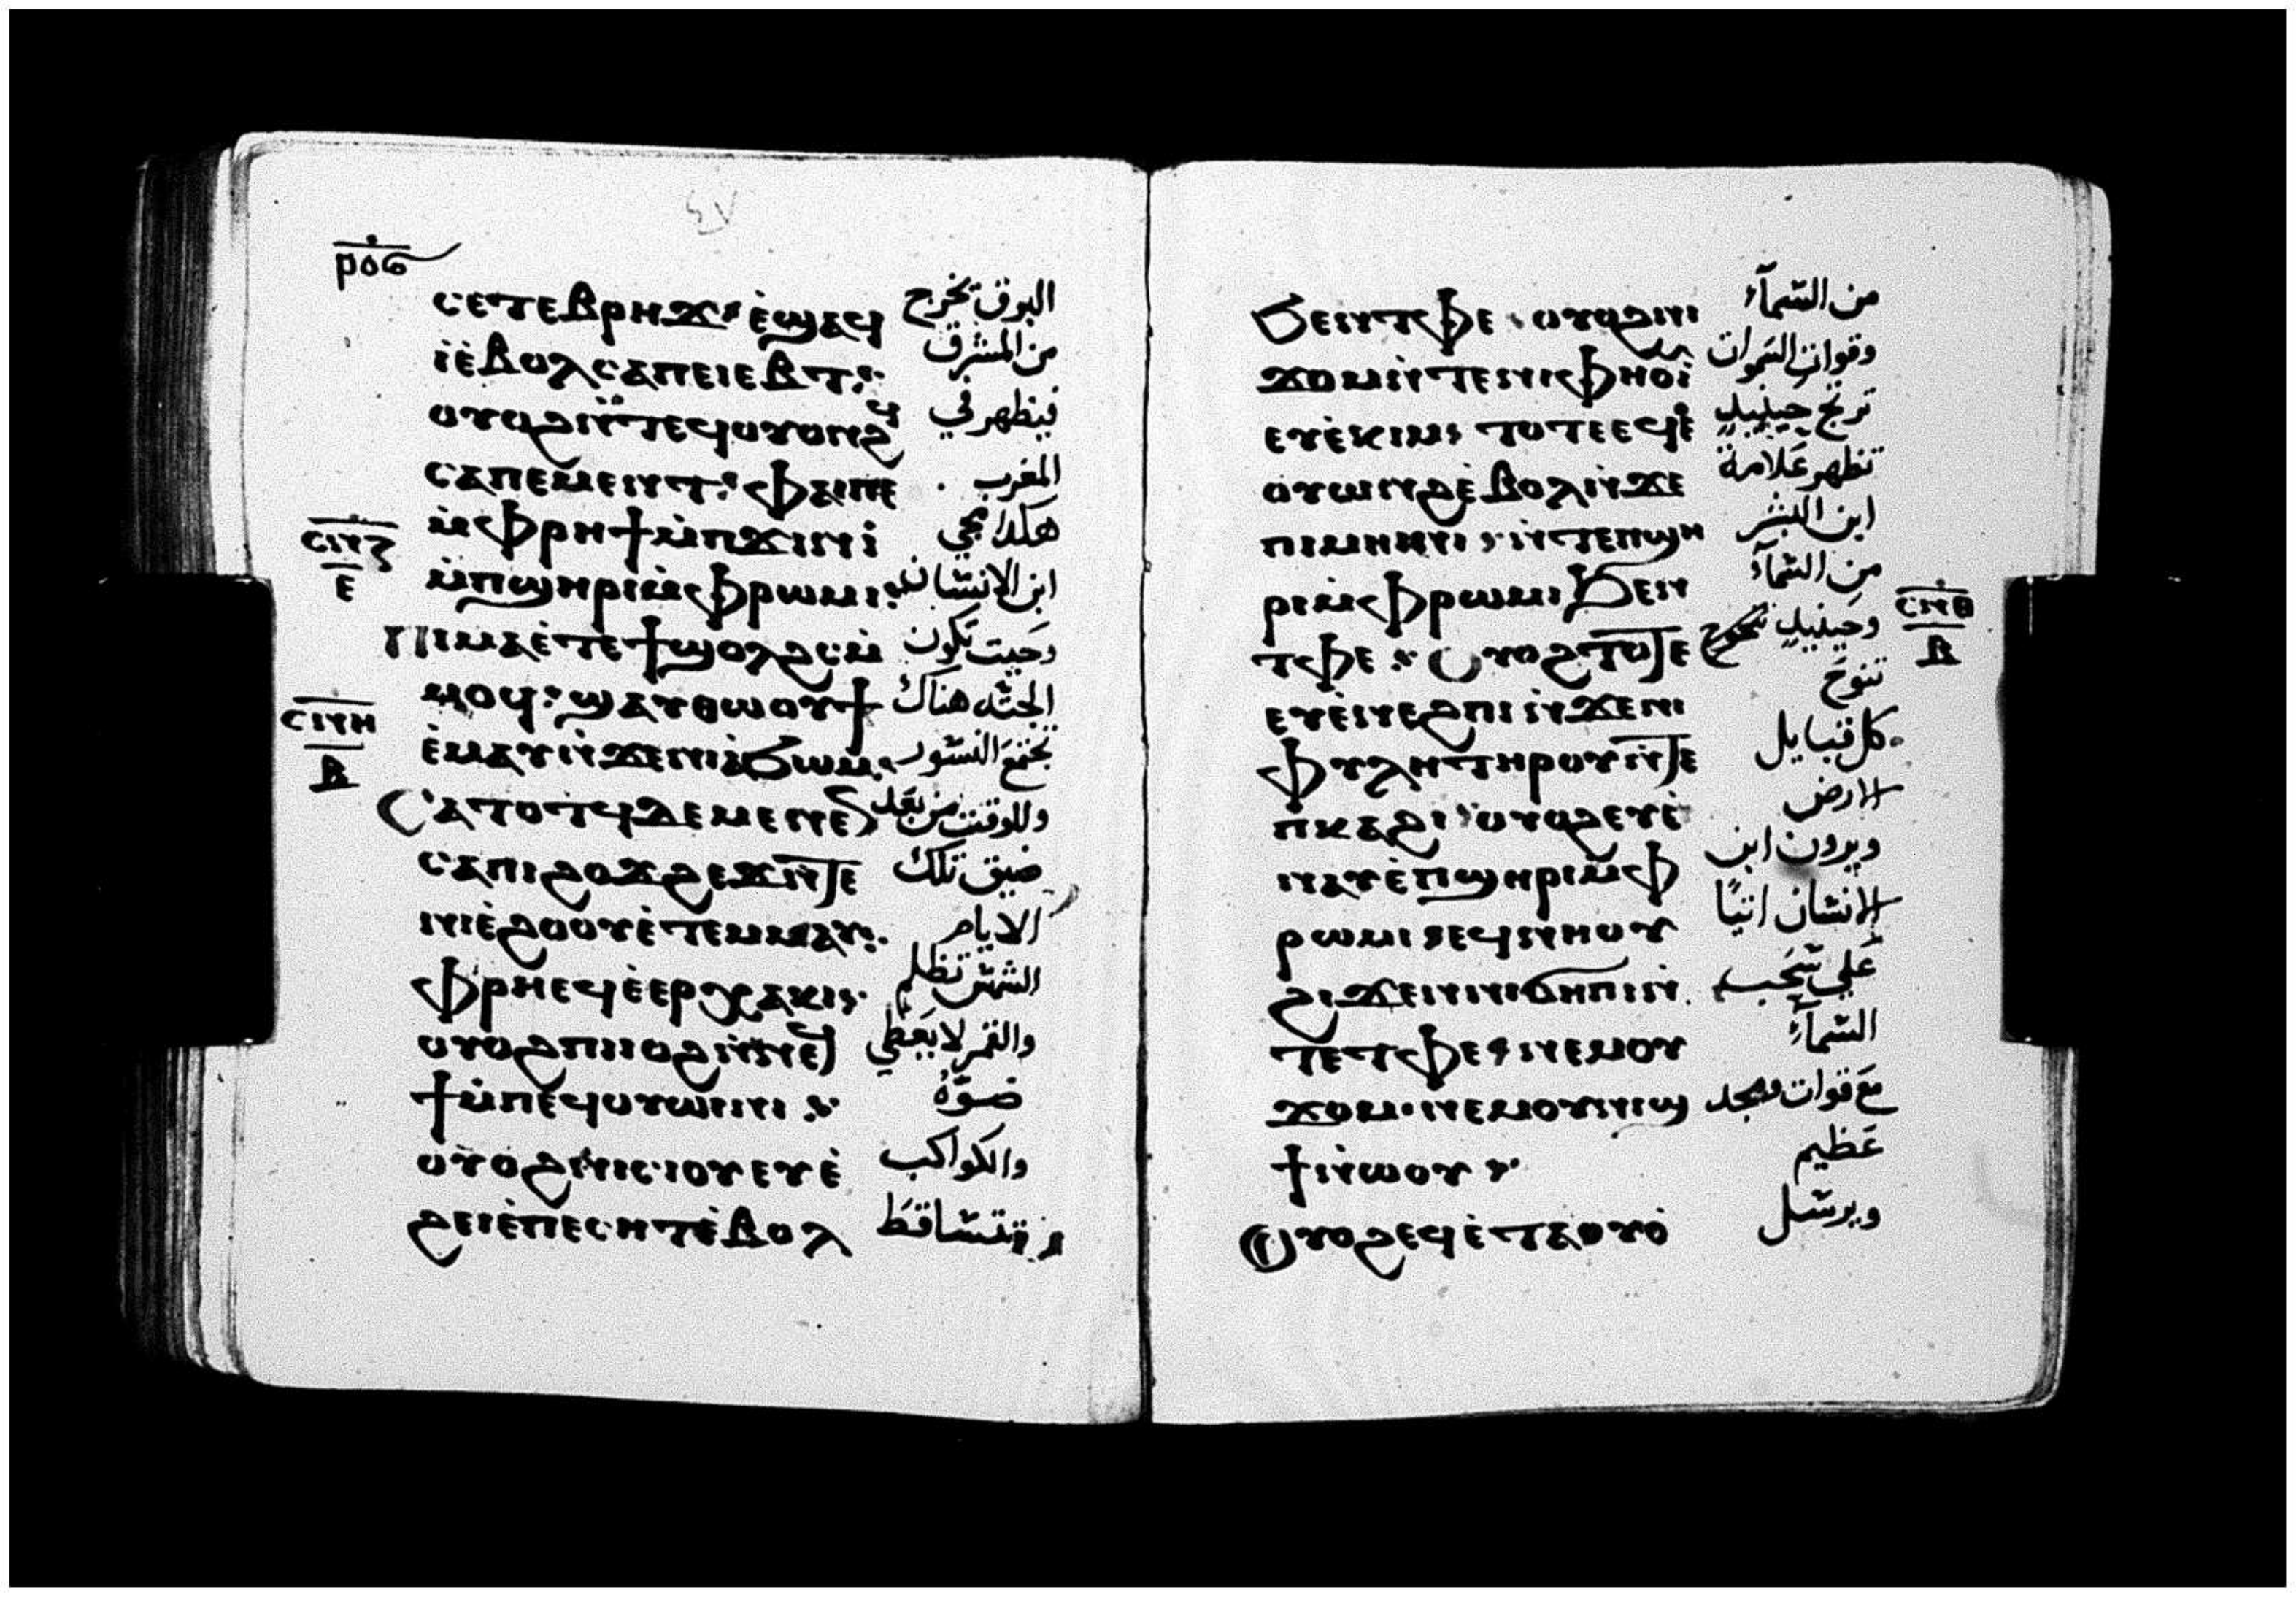 ⲣⲟⲋ
ⲥⲉⲧⲉⲃⲣⲏϫ ⲉ̀ϣⲁϥ البرق تخرج
ⲓⲉ̀ⲃⲟⲗⲥⲁⲡⲉⲓⲉⲃⲧ من المشرق
ⲟⲩⲟϩⲛ̀ⲧⲉϥⲟⲩⲟⲛϩ فيظهر في
ⲥⲁⲡⲉⲙⲉⲛⲧ ⲫⲁⲓⲡⲉ المغرب
ⲙ̀ⲫⲣⲏϯⲙ̀ⲡϫⲓⲛⲓ̀ هكدا مجي
ⲥⲛⲍ
ⲉ
ⲙ̀ⲡϣⲏⲣⲓⲙ̀ⲫⲣⲱⲙⲓ ابن الانسان
ⲡⲓⲙⲁⲉ̀ⲧⲉϯϣⲟⲗϩⲥⲙ̀ وحيت تكون
ⲙⲟϥ ϣⲁⲩⲑⲱⲟⲩϯ الجته هناك
ⲥⲛⲏ
ⲃ
ⲉ̀ⲙⲁⲩⲛ̀ϫⲉⲛⲓⲁ̀ϧⲱⲙ تجتمع النسور
ⲥⲁⲧⲟⲧϥⲇⲉⲙⲉⲛⲉ وللوقت من بعد
ⲥⲁⲡⲓϩⲟϫϩⲉϫⲛ̀ⲧⲉ ضيق تلك
ⲛⲓⲉ̀ϩⲟⲟⲩⲉ̀ⲧⲉⲙⲙⲁⲩ الايام
ⲫⲣⲏⲉϥⲉ̀ⲉⲣⲭⲁⲕⲓ الشمس تظلم
ⲟⲩⲟϩⲡⲓⲓⲟϩⲛ̀ⲛⲉϥ والقمر لا يعطي
ϯⲙ̀ⲡⲉϥⲟⲩⲱⲓⲛⲓ ضوّه
ⲟⲩⲟϩⲛⲓⲥⲓⲟⲩⲉⲩⲉ̀ والكواكب
ϩⲉⲓⲉ̀ⲡⲉⲥⲏⲧⲉ̀ⲃⲟⲗ تتساقط
ϧⲉⲛⲧⲫⲉ ⲟⲩⲟϩⲛⲓ من السمآء
ϫⲟⲙⲛ̀ⲧⲉⲛⲓⲫⲏⲟⲩⲓ̀ وقوات السموات
ⲉⲩⲉ̀ⲕⲓⲙ ⲧⲟⲧⲉⲉϥⲉ̀ ترتج حينيدٍ
ⲟⲩⲱⲛϩⲉ̀ⲃⲟⲗⲛ̀ϫⲉ تظهر علامة
ⲡⲓⲙⲏⲓⲛⲓ ⲛ̀ⲧⲉⲡϣⲏ ابن البشر
ⲣⲓⲙ̀ⲫⲣⲱⲙⲓϧⲉⲛ من السمآء
ⲧⲫⲉ ⲟⲩⲟϩⲧⲟⲧⲉ وحينيدٍ
ⲥⲛⲑ
ⲃ
ⲉⲩⲉ̀ⲛⲉϩⲡⲓⲛ̀ϫⲉⲛⲓ تنوح
ⲫⲩⲗⲏⲧⲏⲣⲟⲩⲛ̀ⲧⲉ كل قبايل
ⲡⲕⲁϩⲓ ⲟⲩⲟϩⲉⲩⲉ̀ الارض
ⲛⲁⲩⲉ̀ⲡϣⲏⲣⲓⲙ̀ⲫ ويرون ابن
ⲣⲱⲙⲓ ⲉϥⲛⲏⲟⲩ الانسان اتيًا
ϩⲓϫⲉⲛⲛⲓϭⲏⲡⲓⲛ̀ علي سحب
ⲧⲉⲧⲫⲉ ⲛⲉⲙⲟⲩ السمآء
ϫⲟⲙ ⲛⲉⲙⲟⲩⲛⲓϣ مع قوات ومجد
ϯⲛ̀ⲱⲟⲩ عظيم
ⲟⲩⲟϩⲉϥⲉ̀ⲧⲁⲟⲩⲟ̀ ويرسل